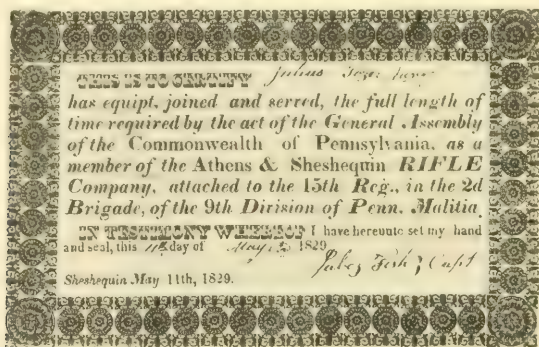 THIS IS TO CERTIFY Julius Tozer
has equipt, joined and served, the full length of
time required by the act of the General Assembly
of the Commonwealth of Pennsylvania, as a
member of the Athens & Sheshequin RIFLE
Company, attached to the 15th Reg., in the 2d
Brigade, of the 9th Division of Penn. Malitia.
IN TESTIMONY WHEREOF I have hereunto set my hand
and seal, this 11th day of May 1829
Jabez Fish, Capt
Sheshequin May 11th, 1829.